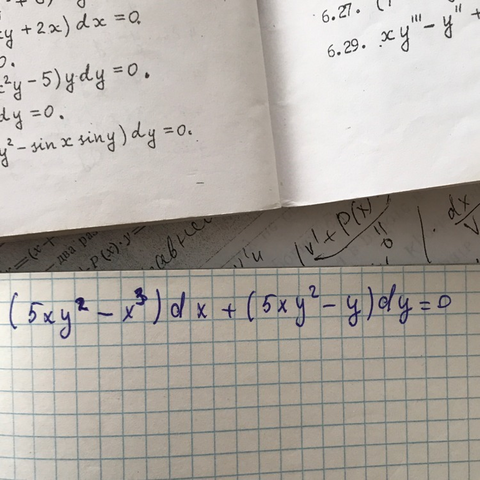 xy + 2x) dx = 0.
0.
x²y - 5) y dy = 0.
dy = 0.
y² - sin x sin y) dy = 0.
6.27.
6.29. xy''' - y'' +
(v' + p(x)
dx
(5xy² - x³) dx + (5xy² - y) dy = 0